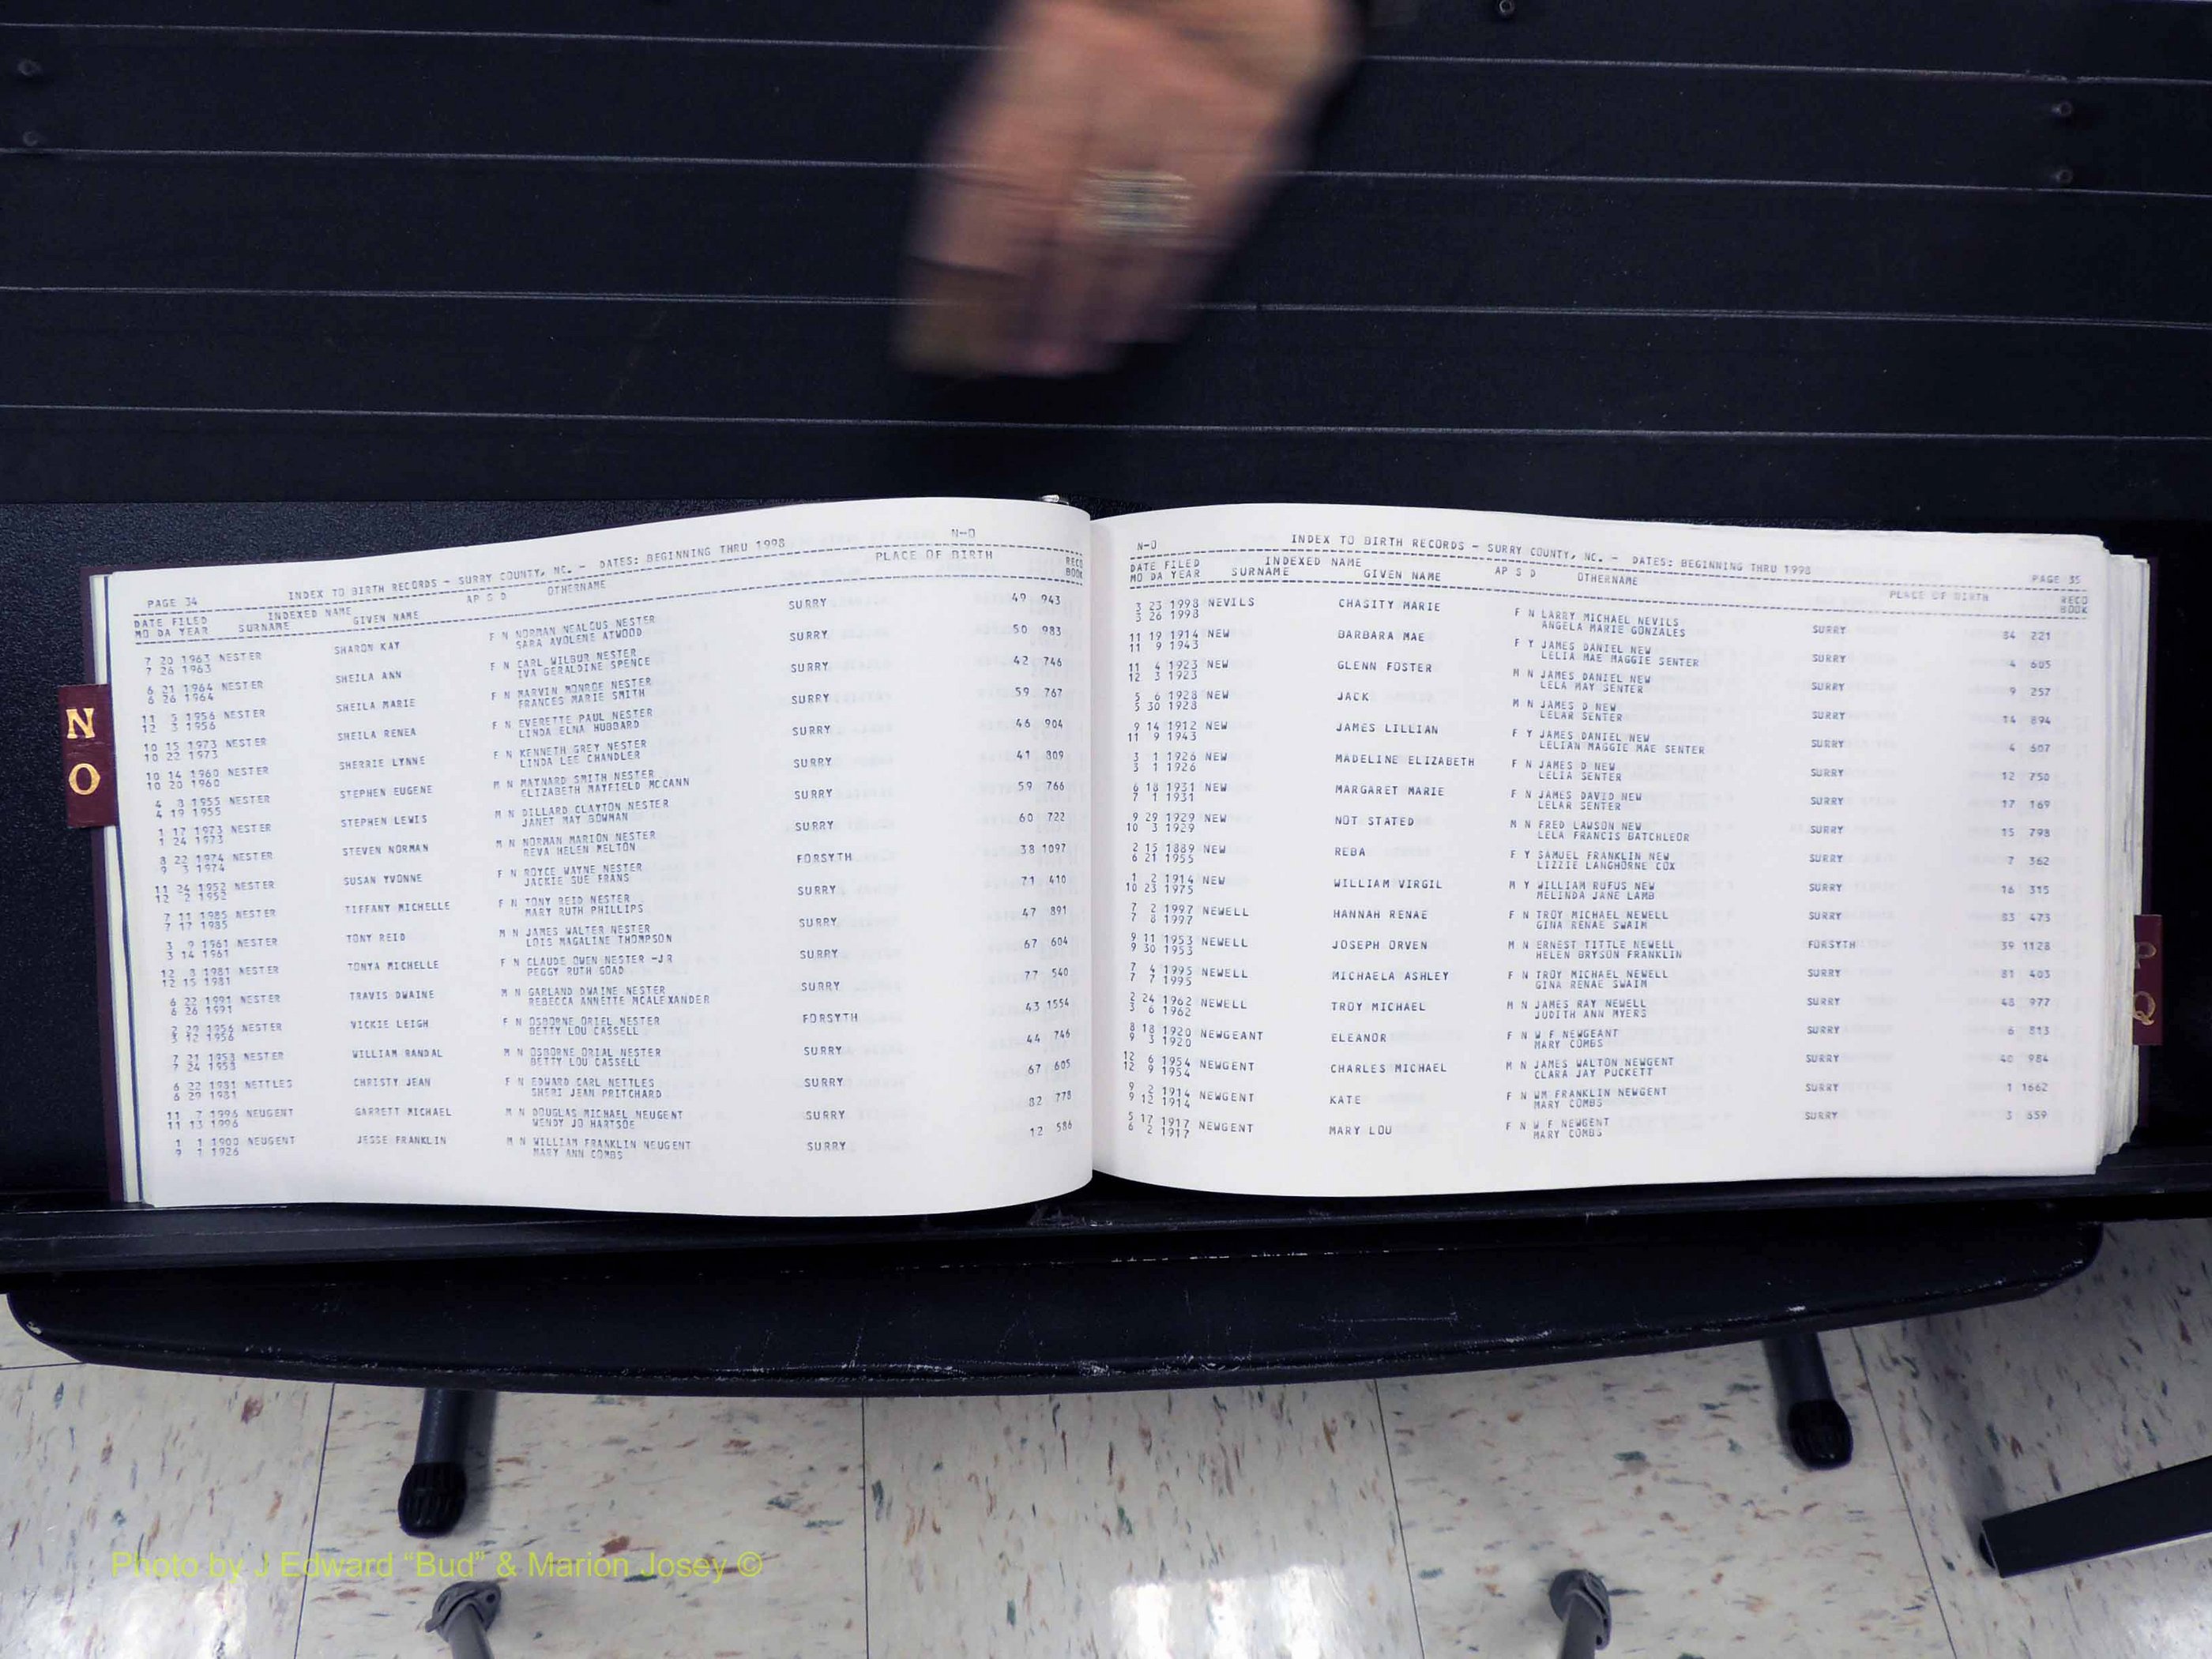 N
O
PAGE 34 INDEX TO BIRTH RECORDS - SURRY COUNTY, NC. - DATES: BEGINNING THRU 1998 N-O
DATE FILED INDEXED NAME AP S D OTHERNAME PLACE OF BIRTH RECO
MO DA YEAR SURNAME GIVEN NAME BOOK
7 20 1963 NESTER SHARON KAY F N NORMAN NEALOUS NESTER SURRY 49 943
7 26 1963 SARA AVOLENE ATWOOD
6 21 1964 NESTER SHEILA ANN F N CARL WILBUR NESTER SURRY 50 983
6 26 1964 IVA GERALDINE SPENCE
11 5 1956 NESTER SHEILA MARIE F N MARVIN MONROE NESTER SURRY 42 746
12 3 1956 FRANCES MARIE SMITH
10 15 1973 NESTER SHEILA RENEA F N EVERETTE PAUL NESTER SURRY 59 767
10 22 1973 LINDA ELNA HUBBARD
10 14 1960 NESTER SHERRIE LYNNE F N KENNETH GREY NESTER SURRY 46 904
10 20 1960 LINDA LEE CHANDLER
4 8 1955 NESTER STEPHEN EUGENE M N MAYNARD SMITH NESTER SURRY 41 809
4 19 1955 ELIZABETH MAYFIELD MCCANN
1 17 1973 NESTER STEPHEN LEWIS M N DILLARD CLAYTON NESTER SURRY 59 766
1 24 1973 JANET MAY BOWMAN
8 22 1974 NESTER STEVEN NORMAN M N NORMAN MARION NESTER SURRY 60 722
9 3 1974 REVA HELEN MELTON
11 24 1952 NESTER SUSAN YVONNE F N ROYCE WAYNE NESTER FORSYTH 38 1097
12 2 1952 JACKIE SUE FRANS
7 11 1985 NESTER TIFFANY MICHELLE F N TONY REID NESTER SURRY 71 410
7 17 1985 MARY RUTH PHILLIPS
3 9 1961 NESTER TONY REID M N JAMES WALTER NESTER SURRY 47 891
3 14 1961 LOIS MAGALINE THOMPSON
12 8 1981 NESTER TONYA MICHELLE F N CLAUDE OWEN NESTER -JR SURRY 67 604
12 15 1981 PEGGY RUTH GOAD
6 22 1991 NESTER TRAVIS DWAINE M N GARLAND DWAINE NESTER SURRY 77 540
6 26 1991 REBECCA ANNETTE MCALEXANDER
2 29 1956 NESTER VICKIE LEIGH F N OSBORNE ORIEL NESTER FORSYTH 43 1554
3 12 1956 BETTY LOU CASSELL
7 21 1958 NESTER WILLIAM RANDAL M N OSBORNE ORIAL NESTER SURRY 44 746
7 24 1958 BETTY LOU CASSELL
6 22 1981 NETTLES CHRISTY JEAN F N EDWARD CARL NETTLES SURRY 67 605
6 29 1981 SHERI JEAN PRITCHARD
11 7 1996 NEUGENT GARRETT MICHAEL M N DOUGLAS MICHAEL NEUGENT SURRY 82 778
11 13 1996 WENDY JO HARTSOE
1 1 1900 NEUGENT JESSE FRANKLIN M N WILLIAM FRANKLIN NEUGENT SURRY 12 586
9 1 1926 MARY ANN COMBS
N-O INDEX TO BIRTH RECORDS - SURRY COUNTY, NC. - DATES: BEGINNING THRU 1998 PAGE 35
DATE FILED INDEXED NAME AP S D OTHERNAME PLACE OF BIRTH RECO
MO DA YEAR SURNAME GIVEN NAME BOOK
3 23 1998 NEVILS CHASITY MARIE F N LARRY MICHAEL NEVILS SURRY 84 221
3 26 1998 ANGELA MARIE GONZALES
11 19 1914 NEW BARBARA MAE F Y JAMES DANIEL NEW SURRY 4 605
11 9 1943 LELIA MAE MAGGIE SENTER
11 4 1923 NEW GLENN FOSTER M N JAMES DANIEL NEW SURRY 9 257
12 3 1923 LELA MAY SENTER
5 6 1928 NEW JACK M N JAMES D NEW SURRY 14 894
5 30 1928 LELAR SENTER
9 14 1912 NEW JAMES LILLIAN F Y JAMES DANIEL NEW SURRY 4 607
11 9 1943 LELIAN MAGGIE MAE SENTER
3 1 1926 NEW MADELINE ELIZABETH F N JAMES D NEW SURRY 12 750
3 1 1926 LELIA SENTER
6 18 1931 NEW MARGARET MARIE F N JAMES DAVID NEW SURRY 17 169
7 1 1931 LELAR SENTER
9 29 1929 NEW NOT STATED M N FRED LAWSON NEW SURRY 15 798
10 3 1929 LELA FRANCIS BATCHLEOR
2 15 1889 NEW REBA F Y SAMUEL FRANKLIN NEW SURRY 7 362
6 21 1955 LIZZIE LANGHORNE COX
1 2 1914 NEW WILLIAM VIRGIL M Y WILLIAM RUFUS NEW SURRY 16 315
10 23 1975 MELINDA JANE LAMB
7 2 1997 NEWELL HANNAH RENAE F N TROY MICHAEL NEWELL SURRY 83 473
7 8 1997 GINA RENAE SWAIM
9 11 1953 NEWELL JOSEPH ORVEN M N ERNEST TITTLE NEWELL FORSYTH 39 1128
9 30 1953 HELEN BRYSON FRANKLIN
7 4 1995 NEWELL MICHAELA ASHLEY F N TROY MICHAEL NEWELL SURRY 81 403
7 7 1995 GINA RENAE SWAIM
2 24 1962 NEWELL TROY MICHAEL M N JAMES RAY NEWELL SURRY 48 977
3 6 1962 JUDITH ANN MYERS
8 18 1920 NEWGEANT ELEANOR F N W F NEWGEANT SURRY 6 813
9 3 1920 MARY COMBS
12 6 1954 NEWGENT CHARLES MICHAEL M N JAMES WALTON NEWGENT SURRY 40 984
12 9 1954 CLARA JAY PUCKETT
9 2 1914 NEWGENT KATE F N WM FRANKLIN NEWGENT SURRY 1 1662
9 12 1914 MARY COMBS
5 17 1917 NEWGENT MARY LOU F N W F NEWGENT SURRY 3 659
6 2 1917 MARY COMBS
Q
Photo by J Edward “Bud” & Marion Josey ©